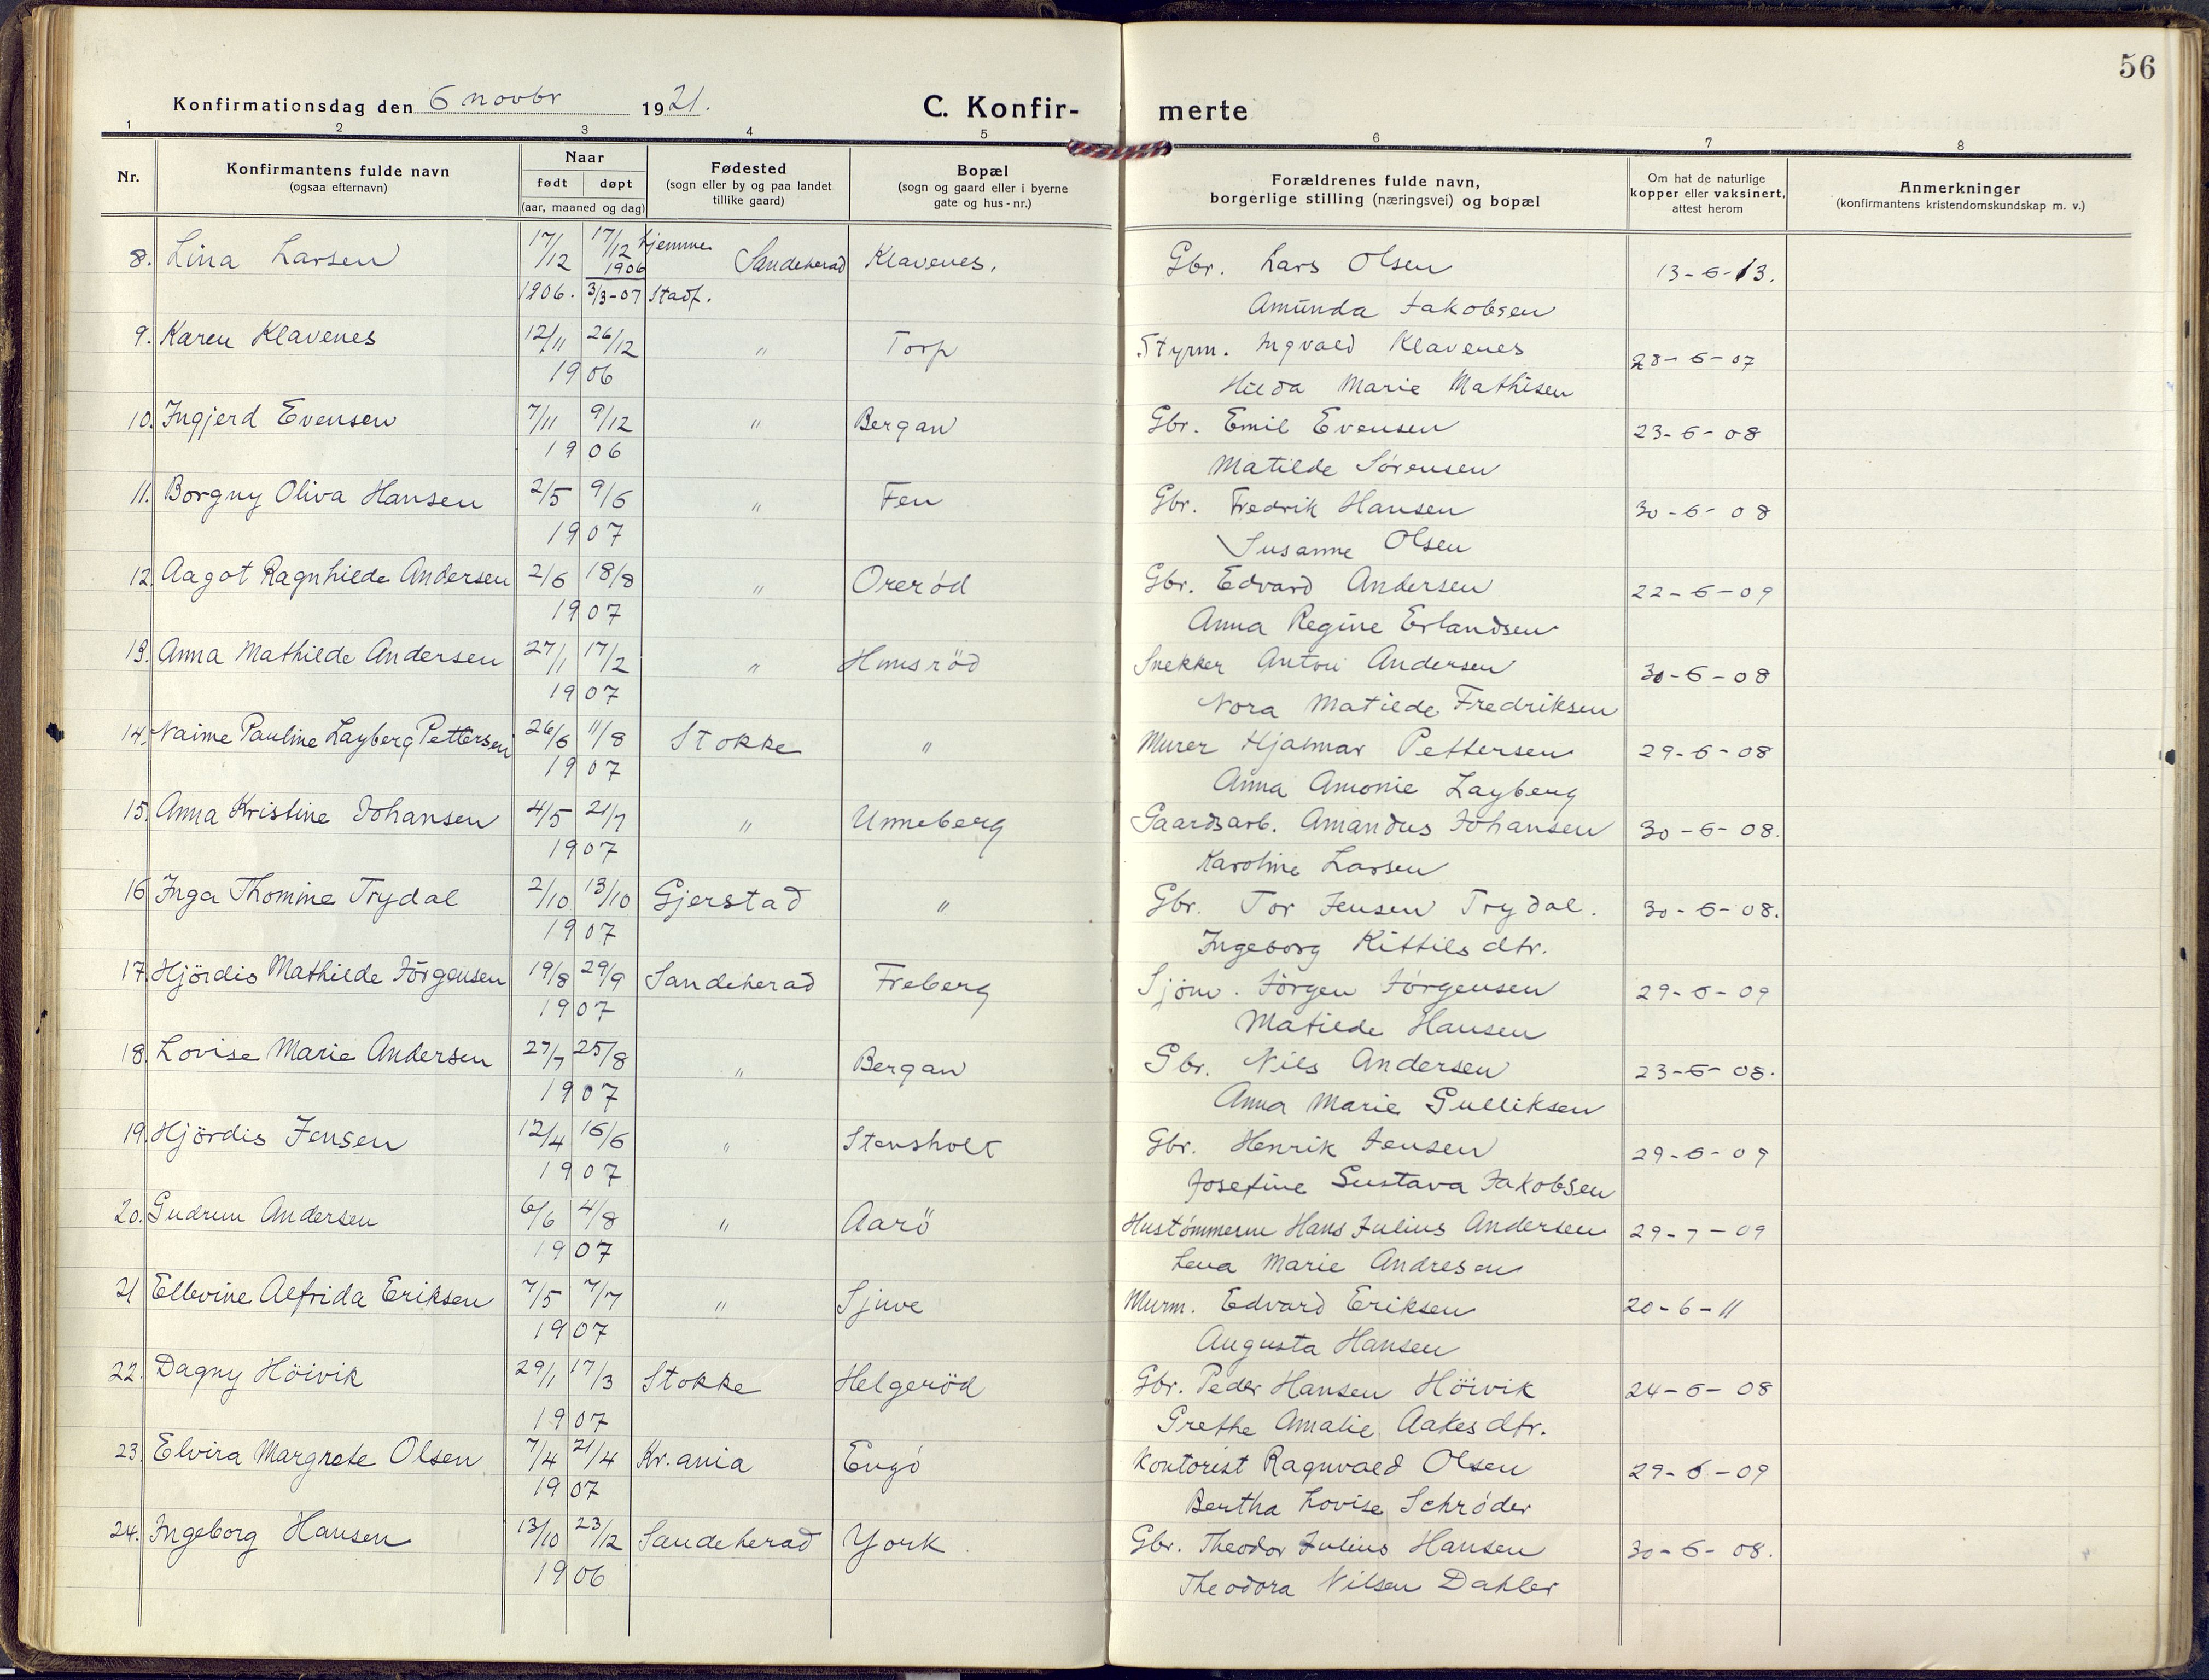 56
Konfirmationsdag den 6 novbr 1921. C. Konfir- merte
1 2 3 4 5 6 7 8
Nr. Konfirmantens fulde navn (ogsaa efternavn) Naar født døpt (aar, maaned og dag) Fødested (sogn eller by og paa landet tillike gaard) Bopæl (sogn og gaard eller i byerne gate og hus-nr.) Forældrenes fulde navn, borgerlige stilling (næringsvei) og bopæl Om hat de naturlige kopper eller vaksinert, attest herom Anmerkninger (konfirmantens kristendomskundskap m. v.)
8. Lina Larsen 17/12 17/12 hjemme Sandeherad Klavenes. Gbr. Lars Olsen 13-6-13.
1906
1906. 3/3-07 Stadf. Amunda Jakobsen
9. Karen Klavenes 12/11 26/12 " Torp Styrm. Ingvald Klavenes 28-6-07
1906 Hilda Marie Mathisen
10. Ingjerd Evensen 7/11 9/12 " Bergan Gbr. Emil Evensen 23-6-08
1906 Matilde Sørensen
11. Borgny Oliva Hansen 2/5 9/6 " Fen Gbr. Fredrik Hansen 30-6-08
1907 Susanne Olsen
12. Aagot Ragnhilde Andersen 2/6 18/8 " Orerød Gbr. Edvard Andersen 22-6-09
1907 Anna Regine Erlandsen
13. Anna Mathilde Andersen 27/1 17/2 " Snekker Anton Andersen 30-6-08
1907 Nora Matilde Fredriksen
14. Naime Pauline Layberg Pettersen 26/6 11/8 Stokke " Murer Hjalmar Pettersen 29-6-08
1907 Anna Amonie Layberg
15. Anna Kristine Johansen 4/5 21/7 " Unneberg Gaardsarb. Amandus Johansen 30-6-08.
1907 Karoline Larsen
16 Inga Thomine Trydal 2/10 13/10 Gjerstad " Gbr. Tor Jensen Trydal. 30-6-08.
1907 Ingeborg Kittilsdtr.
17. Hjördis Mathilde Jörgensen 19/8 29/9 Sandeherad Freberg Sjöm. Jörgen Jörgensen 29-6-09
1907 Matilde Hansen
18. Lovise Marie Andersen 27/7 25/8 " Bergan Gbr. Nils Andersen 23-6-08.
1907 Anna Marie Gulliksen
19. Hjördis Jensen 12/4 16/6 " Stensholt Gbr. Henrik Jensen 29-6-09
1907 Josefine Gustava Jakobsen
20. Gudrun Andersen 6/6 4/8 " Aarö Hustömmerm Hans Julius Andersen 29-7-09
1907 Lena Marie Andresen
21 Ellevine Alfrida Eriksen 7/5 7/7 " Sjuve Murm. Edvard Eriksen 20-6-11
1907 Augusta Hansen
22. Dagny Höivik 29/1 17/3 Stokke Helgeröd Gbr. Peder Hansen Höivik 24-6-08
1907 Grethe Amalie Aakesdtr.
23. Elvira Margrete Olsen 7/4 21/4 Kr.ania Engö Kontorist Ragnvald Olsen 29-6-09
1907 Bertha Lovise Schrøder
24. Ingeborg Hansen 13/10 23/12 Sandeherad York Gbr. Theodor Julius Hansen 30-6-08.
1906 Theodora Nilsen Dahler